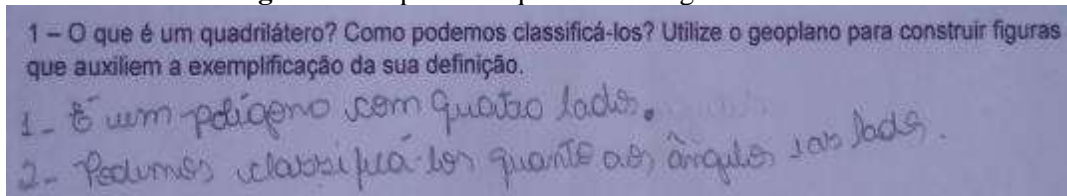 1 – O que é um quadrilátero? Como podemos classificá-los? Utilize o geoplano para construir figuras
que auxiliem a exemplificação da sua definição.
1- É um polígono com quatro lados.
2- Podemos classificá-los quanto aos ângulos lados.